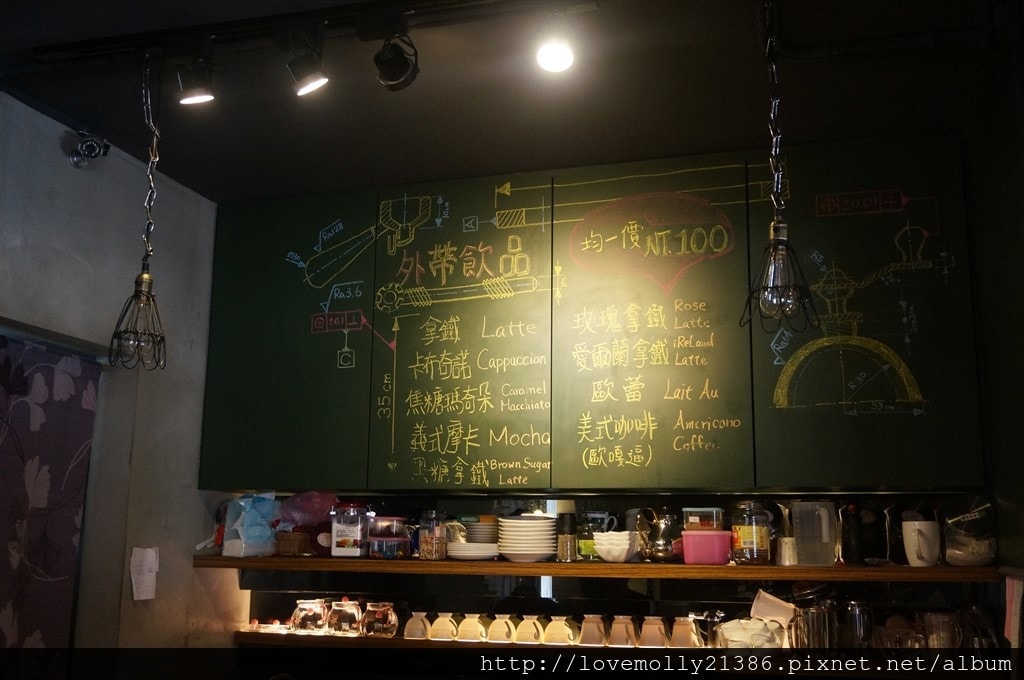 外帶飲品
拿鐵 Latte
卡布奇諾 Cappuccion
焦糖瑪奇朵 Caramel Macchiato
義式摩卡 Mocha
黑糖拿鐵 Brown Sugar Latte
均一價 NT.100
玫瑰拿鐵 Rose Latte
愛爾蘭拿鐵 iReland Latte
歐蕾 Lait Au
美式咖啡 Americano Coffee
(歐嘎逼)
Ra3.6
C
A
35cm
http://lovemolly21386.pixnet.net/album